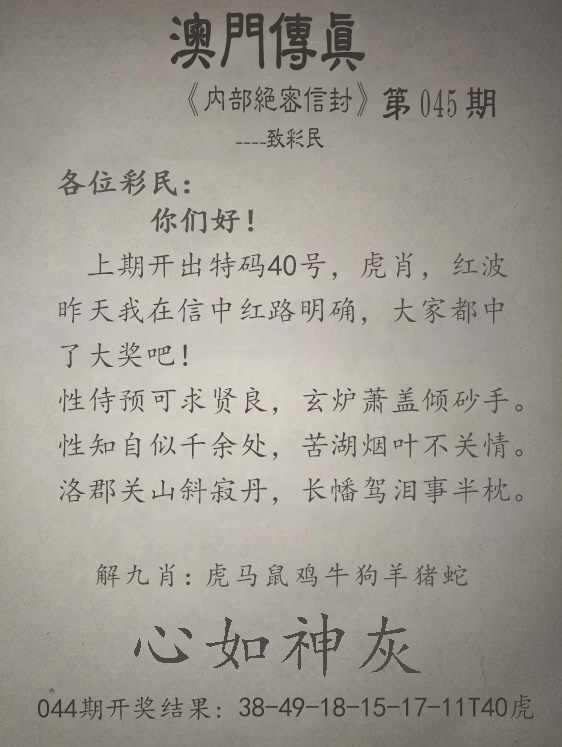 澳門傳眞
《内部絕密信封》第045期
----致彩民
各位彩民：
你们好！
上期开出特码40号，虎肖，红波
昨天我在信中红路明确，大家都中
了大奖吧！
性侍预可求贤良，玄炉萧盖倾砂手。
性知自似千余处，苦湖烟叶不关情。
洛郡关山斜寂丹，长幡驾泪事半枕。
解九肖：虎马鼠鸡牛狗羊猪蛇
心如神灰
044期开奖结果：38-49-18-15-17-11T40虎